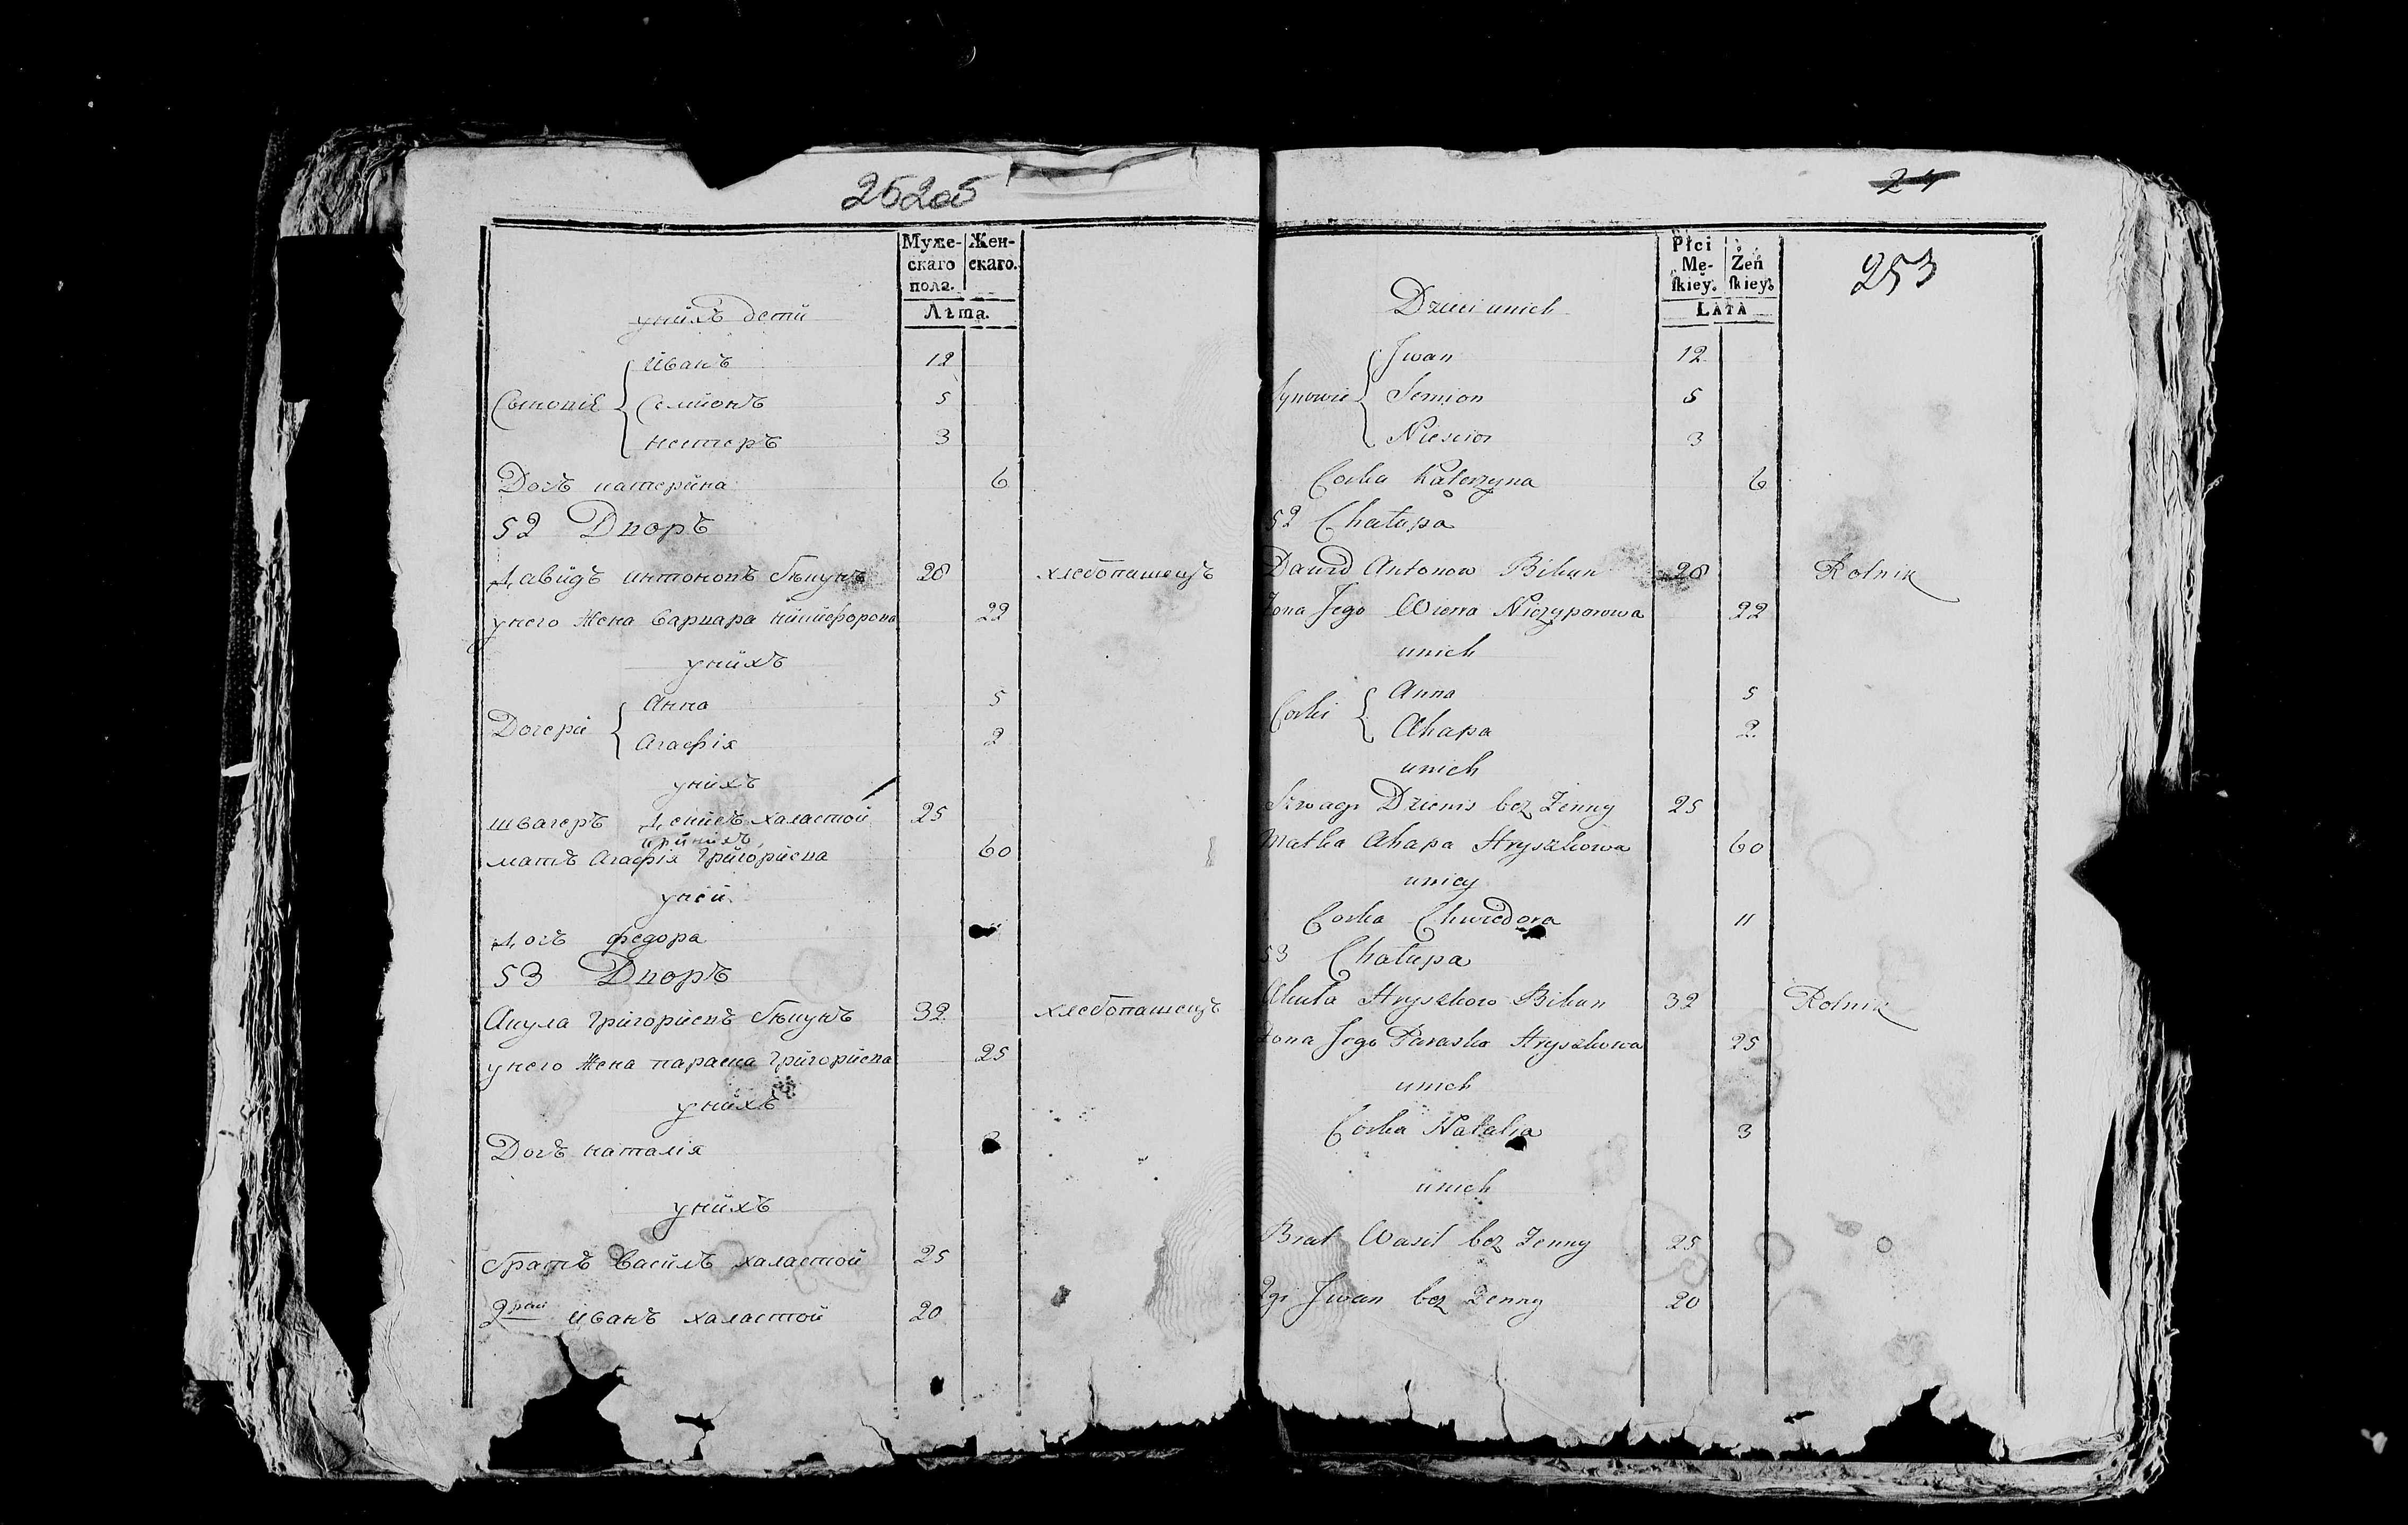 25205
Муже-
скаго
пола.
Жен-
скаго.
Лѣта.
унихъ дети
Сыновіе
Иванъ 12
Семионъ 5
нестеръ 3
Дочъ катерина 6
52 Дворъ
Давидъ антоновъ бѣкунъ 28 хлебопашецъ
унего жена варвара никифорова 22
унихъ
Дочери
Анна 5
Агафія 2
унихъ
швагеръ Денисъ халастой 25
принихъ
мать Агафія Григориева 60
уней
Дочъ федора
53 Дворъ
Акула григориевъ бѣкунъ 32 хлебопашецъ
унего жена параска григориева 25
унихъ
Дочъ наталія 3
унихъ
братъ василъ халастой 25
2рой иванъ халастой 20
24
253
Płci
Mę-
skiey.
Żeń
skiey.
LATA
Dzieci unich
Synowie
Jwan 12
Semion 5
Niescior 3
Corka Katerzyna 6
52 Chatupa
Dawid Antonow Bikun 28 Rolnik
Zona Jego Wierra Niczyporowa 22
unich
Corki
Anna 5
Ahapa 2
unich
Szwagr Dzienis bez Zenny 25
Matka Ahapa Hryszkowa 60
unicy
Corka Chwiedora 11
53 Chatupa
Akuta Hryszkow Bikun 32 Rolnik
Zona Jego Paraska Hryszkowa 25
unich
Corka Natalia 3
unich
Brat Wasil bez Zenny 25
2gi Jwan bez Zenny 20